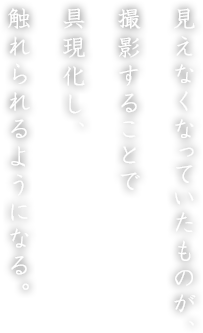 見えなくなっていたものが、
撮影することで
具現化し、
触れられるようになる。